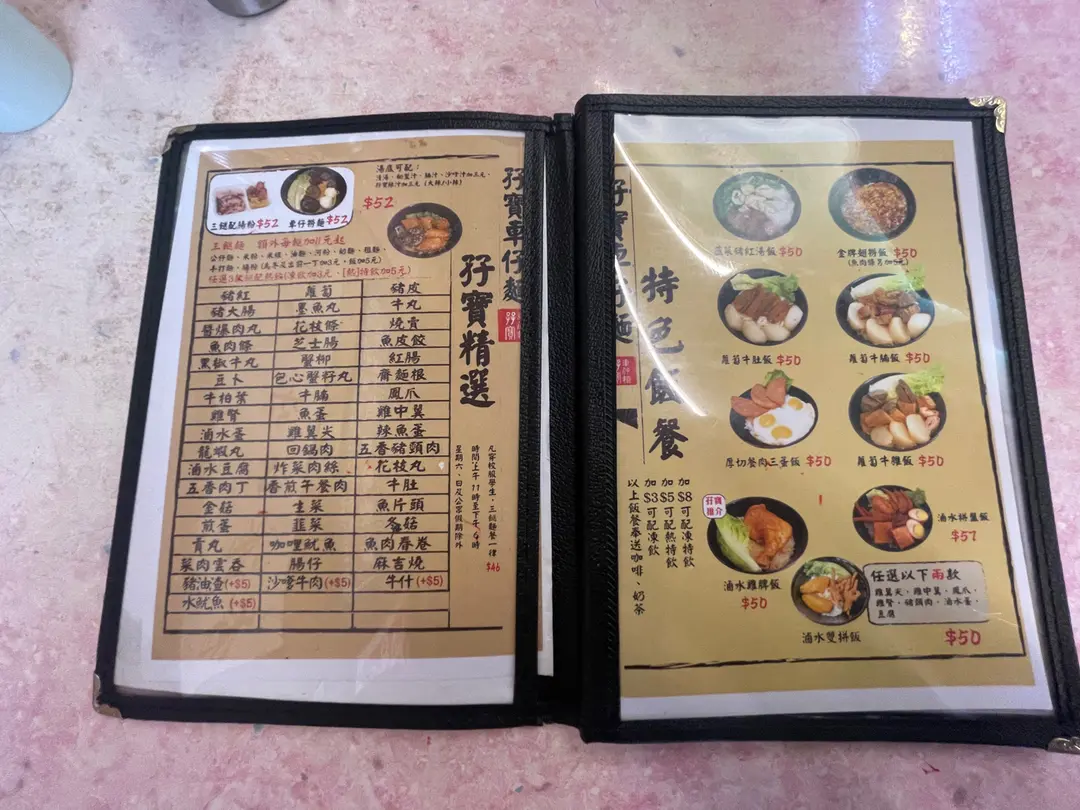 孖寶車仔麵
孖寶精選
湯底可配：
清湯、
沙嗲汁加三元、
三餸配腸粉 $52
車仔撈麵 $52
$52
三餸麵 額外每餸加11元起
公仔麵、米粉、米線、油麵、河粉、幼麵、粗麵、
任選3餸
豬紅 蘿蔔 豬皮
豬大腸 墨魚丸 牛丸
醬爆肉丸 花枝條 燒賣
魚肉條 芝士腸 魚皮餃
黑椒牛丸 蟹柳 紅腸
豆卜 包心蟹籽丸 齋麵根
牛柏葉 牛腩 鳳爪
雞腎 魚蛋 雞中翼
滷水蛋 雞翼尖 辣魚蛋
龍蝦丸 回鍋肉 五香豬頭肉
滷水豆腐 炸菜肉絲 花枝丸
五香肉丁 香煎午餐肉 牛肚
金菇 生菜 魚片頭
煎蛋 韮菜 冬菇
貢丸 咖哩魷魚 魚肉春卷
菜肉雲吞 腸仔 麻吉燒
豬油渣(+$5) 沙嗲牛肉(+$5) 牛什(+$5)
水魷魚 (+$5)
凡穿校服學生，三餸麵餐一律 $46
時間：上午11時至下午6時
星期六、日及公眾假期除外
特色飯餐
豬紅湯飯 $50
金牌撈飯 $50
蘿蔔牛肚飯 $50
蘿蔔牛腩飯 $50
厚切餐肉三蛋飯 $50
蘿蔔牛雜飯 $50
孖寶
推介
滷水雞髀飯
$50
滷水拼盤飯
$57
任選以下兩款
雞翼尖，雞中翼，鳳爪，
雞腎，豬頭肉，滷水蛋，
豆腐
滷水雙拼飯
$50
加$8可配凍特飲
加$5可配熱特飲
加$3可配凍飲
以上飯餐奉送咖啡、奶茶